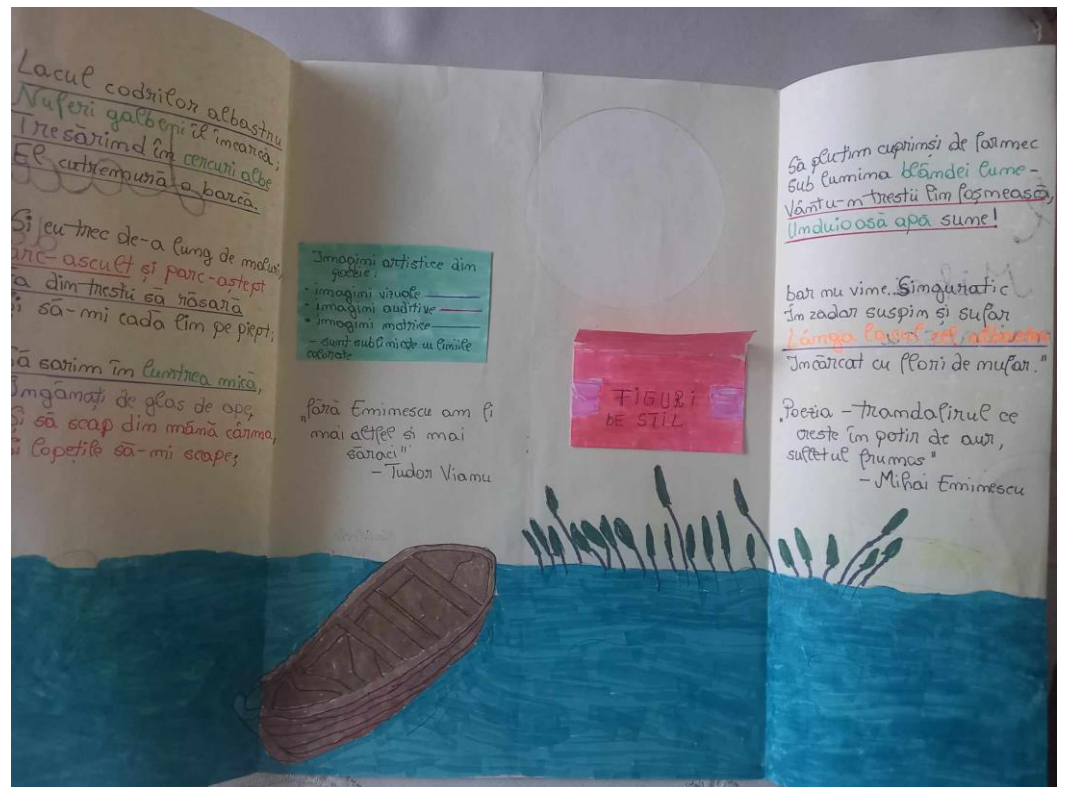 Lacul codrilor albastru
Nuferi galbeni îl încarcă;
Tresărind în cercuri albe
El cutremură o barcă.
Și eu trec de-a lung de maluri,
Parc-ascult și parc-aștept
Ea din trestii să răsară
Și să-mi cadă lin pe piept;
Să sarim în luntrea mică,
Îngămați de glas de ape,
Și să scap din mână cârma,
Și lopețile să-mi scape;
Imagini artistice din
poezie:
• imagini vizuale
• imagini auditive
• imagini motrice
- sunt subliniate cu liniile
colorate
„Fără Eminescu am fi
mai altfel și mai
săraci"
- Tudor Vianu
FIGURI
DE STIL
Să plutim cuprinși de farmec
Sub lumina blândei lune -
Vântu-n trestii lin foșnească,
Unduioasă apă sune!
Dar nu vine.. Singuratic
În zadar suspin și sufăr
Lângă lacul cel albastru
Încărcat cu flori de nufăr."
„Poezia - trandafirul ce
crește în potir de aur,
sufletul frumos"
- Mihai Eminescu